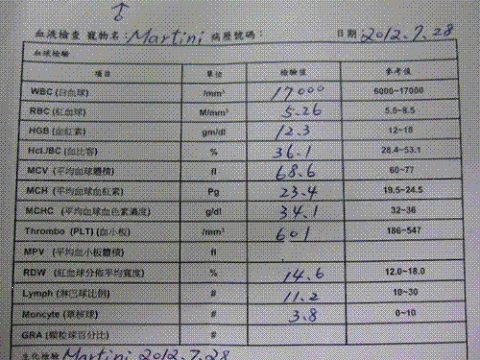 血液檢查 寵物名：Martini 病歷號碼： 日期 2012.7.28
血球檢驗
項目 單位 檢驗值 參考值
WBC (白血球) /mm³ 17000 6000~17000
RBC (紅血球) M/mm³ 5.26 5.5~8.5
HGB (血紅素) gm/dl 12.3 12~18
Hct./BC (血比容) % 36.1 28.4~53.1
MCV (平均血球體積) fl 68.6 60~77
MCH (平均血球血紅素) Pg 23.4 19.5~24.5
MCHC (平均血球血色素濃度) g/dl 34.1 32~36
Thrombo (PLT) (血小板) /mm³ 601 186~547
MPV (平均血小板體積) fl
RDW (紅血球分佈平均寬度) % 14.6 12.0~18.0
Lymph (淋巴球比例) # 11.2 10~30
Moncyte (單核球) # 3.8 0~10
GRA (顆粒球百分比) #
生化檢驗 Martini 2012.7.28